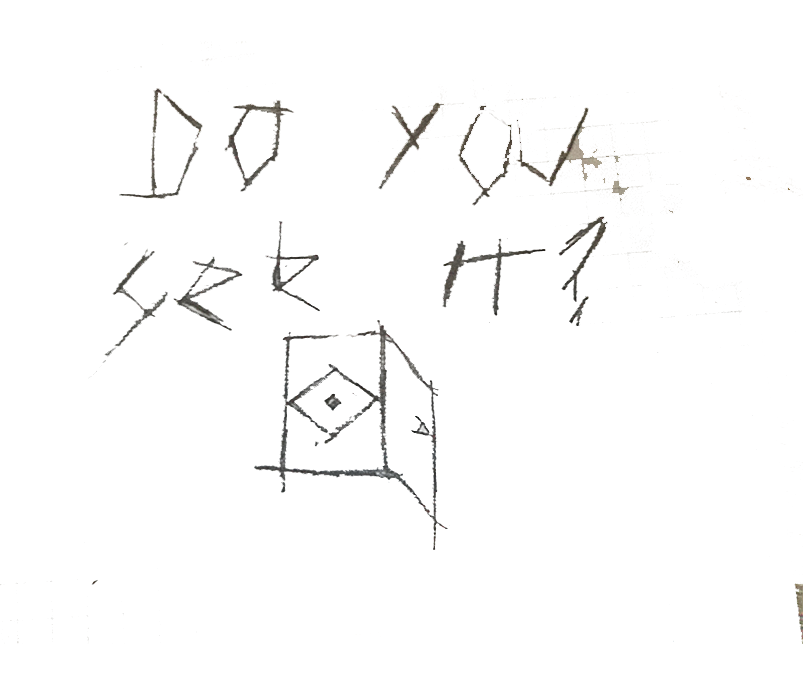 DO YOU
SEE IT?